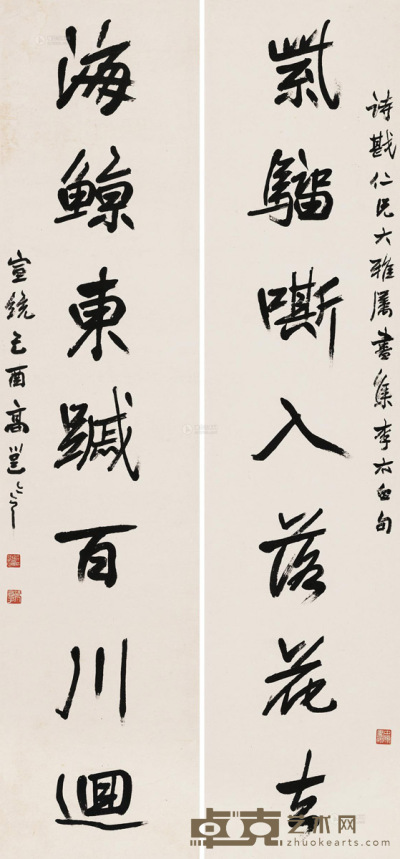 詩戡仁兄大雅屬書集李太白句
紫騮嘶入落花去
海鯨東䠞百川迴
宣統己酉高邕
卓克艺术网
zhuokearts.com